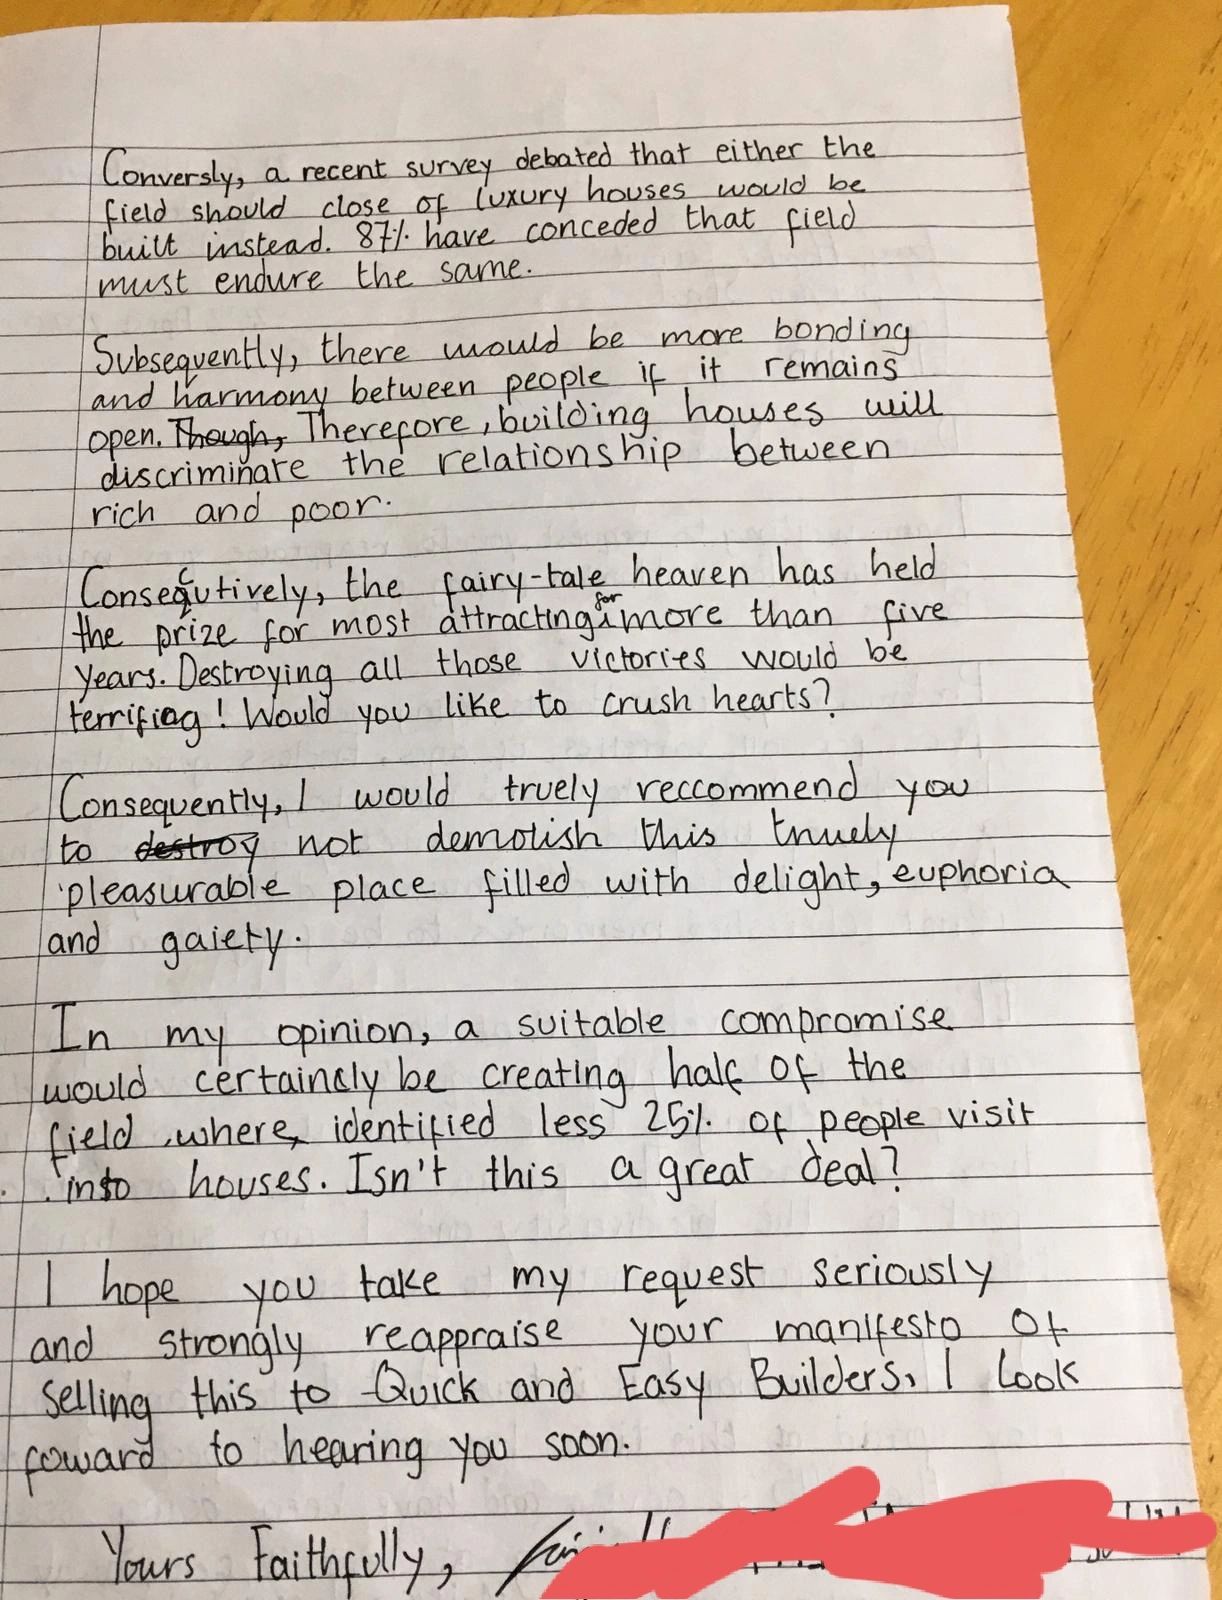 Conversly, a recent survey debated that either the
field should close of luxury houses would be
built instead. 87% have conceded that field
must endure the same.
Subsequently, there would be more bonding
and harmony between people if it remains
open. Though, Therefore, building houses will
discriminate the relationship between
rich and poor.
Consecutively, the fairy-tale heaven has held
the prize for most attracting for more than five
years. Destroying all those victories would be
terrifing! Would you like to crush hearts?
Consequently, I would truely reccommend you
to destroy not demolish this truely
pleasurable place filled with delight, euphoria
and gaiety.
In my opinion, a suitable compromise
would certaincly be creating half of the
field where, identified less 25% of people visit
into houses. Isn't this a great deal?
I hope you take my request seriously
and strongly reappraise your manifesto of
selling this to Quick and Easy Builders. I look
foward to hearing you soon.
Yours Faithfully,